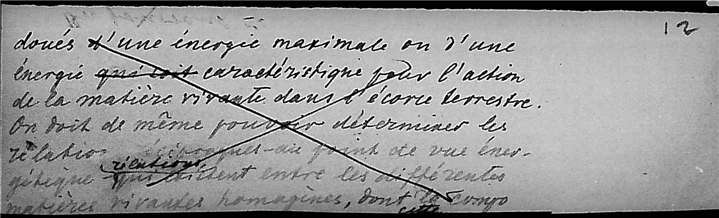 12
doués d'une énergie maximale on d'une
énergie qui soit caractéristique pour l'action
de la matière vivante dans l'écorce terrestre.
On doit de même pouvoir déterminer les
au point de vue éner-
relations
gétique qui existent entre les différentes
matières vivantes homogènes, dont la